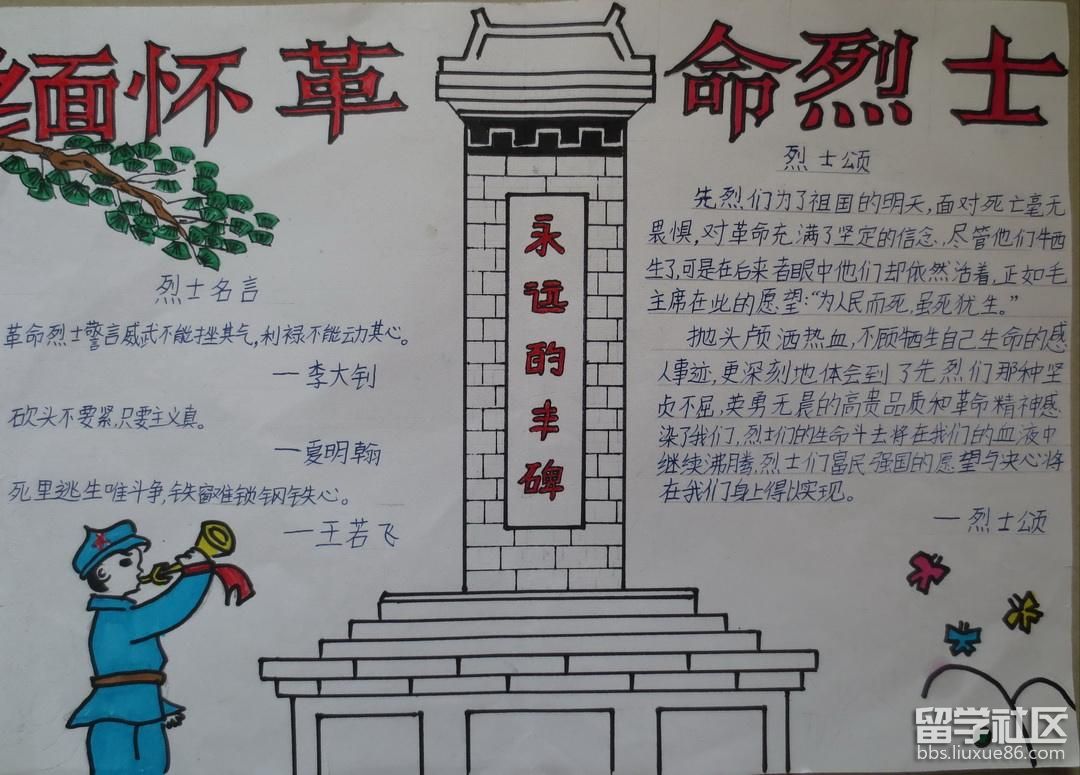 缅怀革命烈士
永远的丰碑
烈士名言
革命烈士警言威武不能挫其气,利禄不能动其心。
—李大钊
砍头不要紧,只要主义真。
—夏明翰
死里逃生唯斗争,铁窗难锁钢铁心。
—王若飞
烈士颂
先烈们为了祖国的明天,面对死亡毫无
畏惧,对革命充满了坚定的信念,尽管他们牺
生了,可是在后来者眼中他们却依然活着,正如毛
主席在此的愿望:“为人民而死,虽死犹生。”
抛头颅洒热血,不顾牺生自己生命的感
人事迹,更深刻地体会到了先烈们那种坚
贞不屈,英勇无晨的高贵品质和革命精神感
染了我们,烈士们的生命斗去将在我们的血液中
继续沸腾,烈士们富民强国的愿望与决心将
在我们身上得以实现。
—烈士颂
留学社区
bbs.liuxue86.com